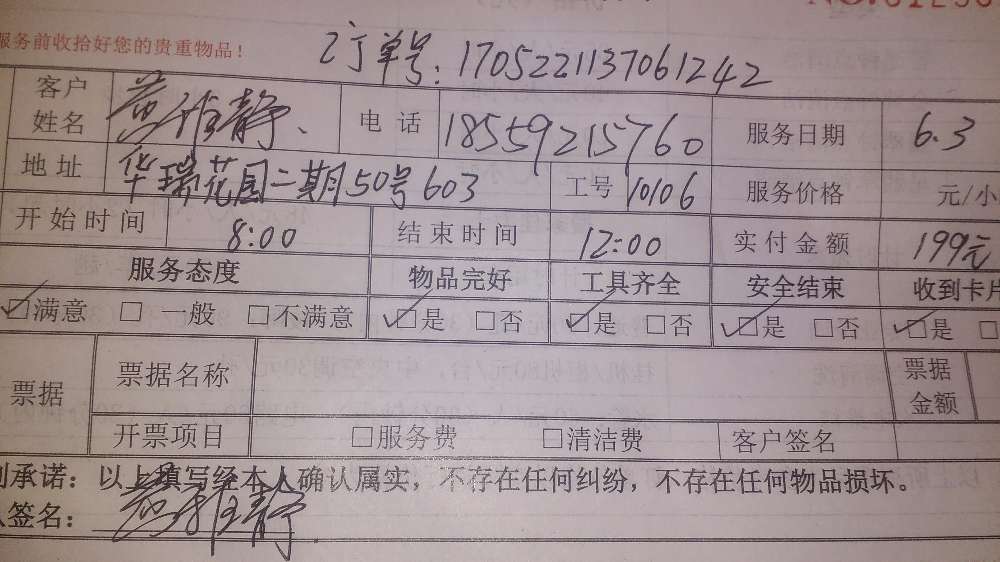 服务前收拾好您的贵重物品！
订单号：1705221137061242
客户姓名 黄雅静 电话 18559215760 服务日期 6.3
地址 华瑞花园二期50号603 工号 10106 服务价格 元/小
开始时间 8:00 结束时间 12:00 实付金额 199元
服务态度 物品完好 工具齐全 安全结束 收到卡片
☑满意 □一般 □不满意 ☑是 □否 ☑是 □否 ☑是 □否 ☑是 □
票据 票据名称 票据金额
开票项目 □服务费 □清洁费 客户签名
承诺：以上填写经本人确认属实，不存在任何纠纷，不存在任何物品损坏。
签名：黄雅静